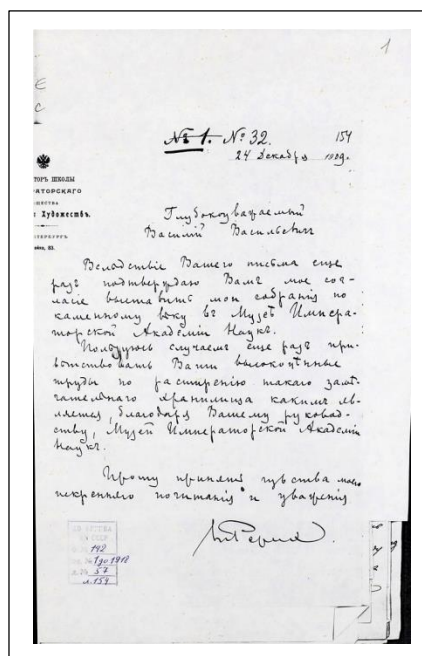 1
Є
С
№ 1. № 32. 154
24 Декабря 1909.
ТОРЪ ШКОЛЫ
РАТОРСКАГО
ЩЕСТВА
Художествъ.
ТЕРБУРГЪ
83.
Глубокоуважаемый
Василій Васильевичъ
Вследствіе Вашего письма еще
разъ подтверждаю Вамъ мое сог-
ласіе выставить мои собранія по
каменному вѣку въ Музеѣ Импера-
торской Академіи Наукъ.
Пользуюсь случаемъ еще разъ при-
вѣтствовать Ваши высокоцѣнные
труды по расширенію такого замѣ-
чательнаго хранилища какимъ яв-
ляется, благодаря Вашему руковод-
ству, Музей Императорской Академіи
Наукъ.
Прошу принять чувства моего
искренняго почитанія и уваженія
Н Рерих
142
1 до 1918
57
л. 154